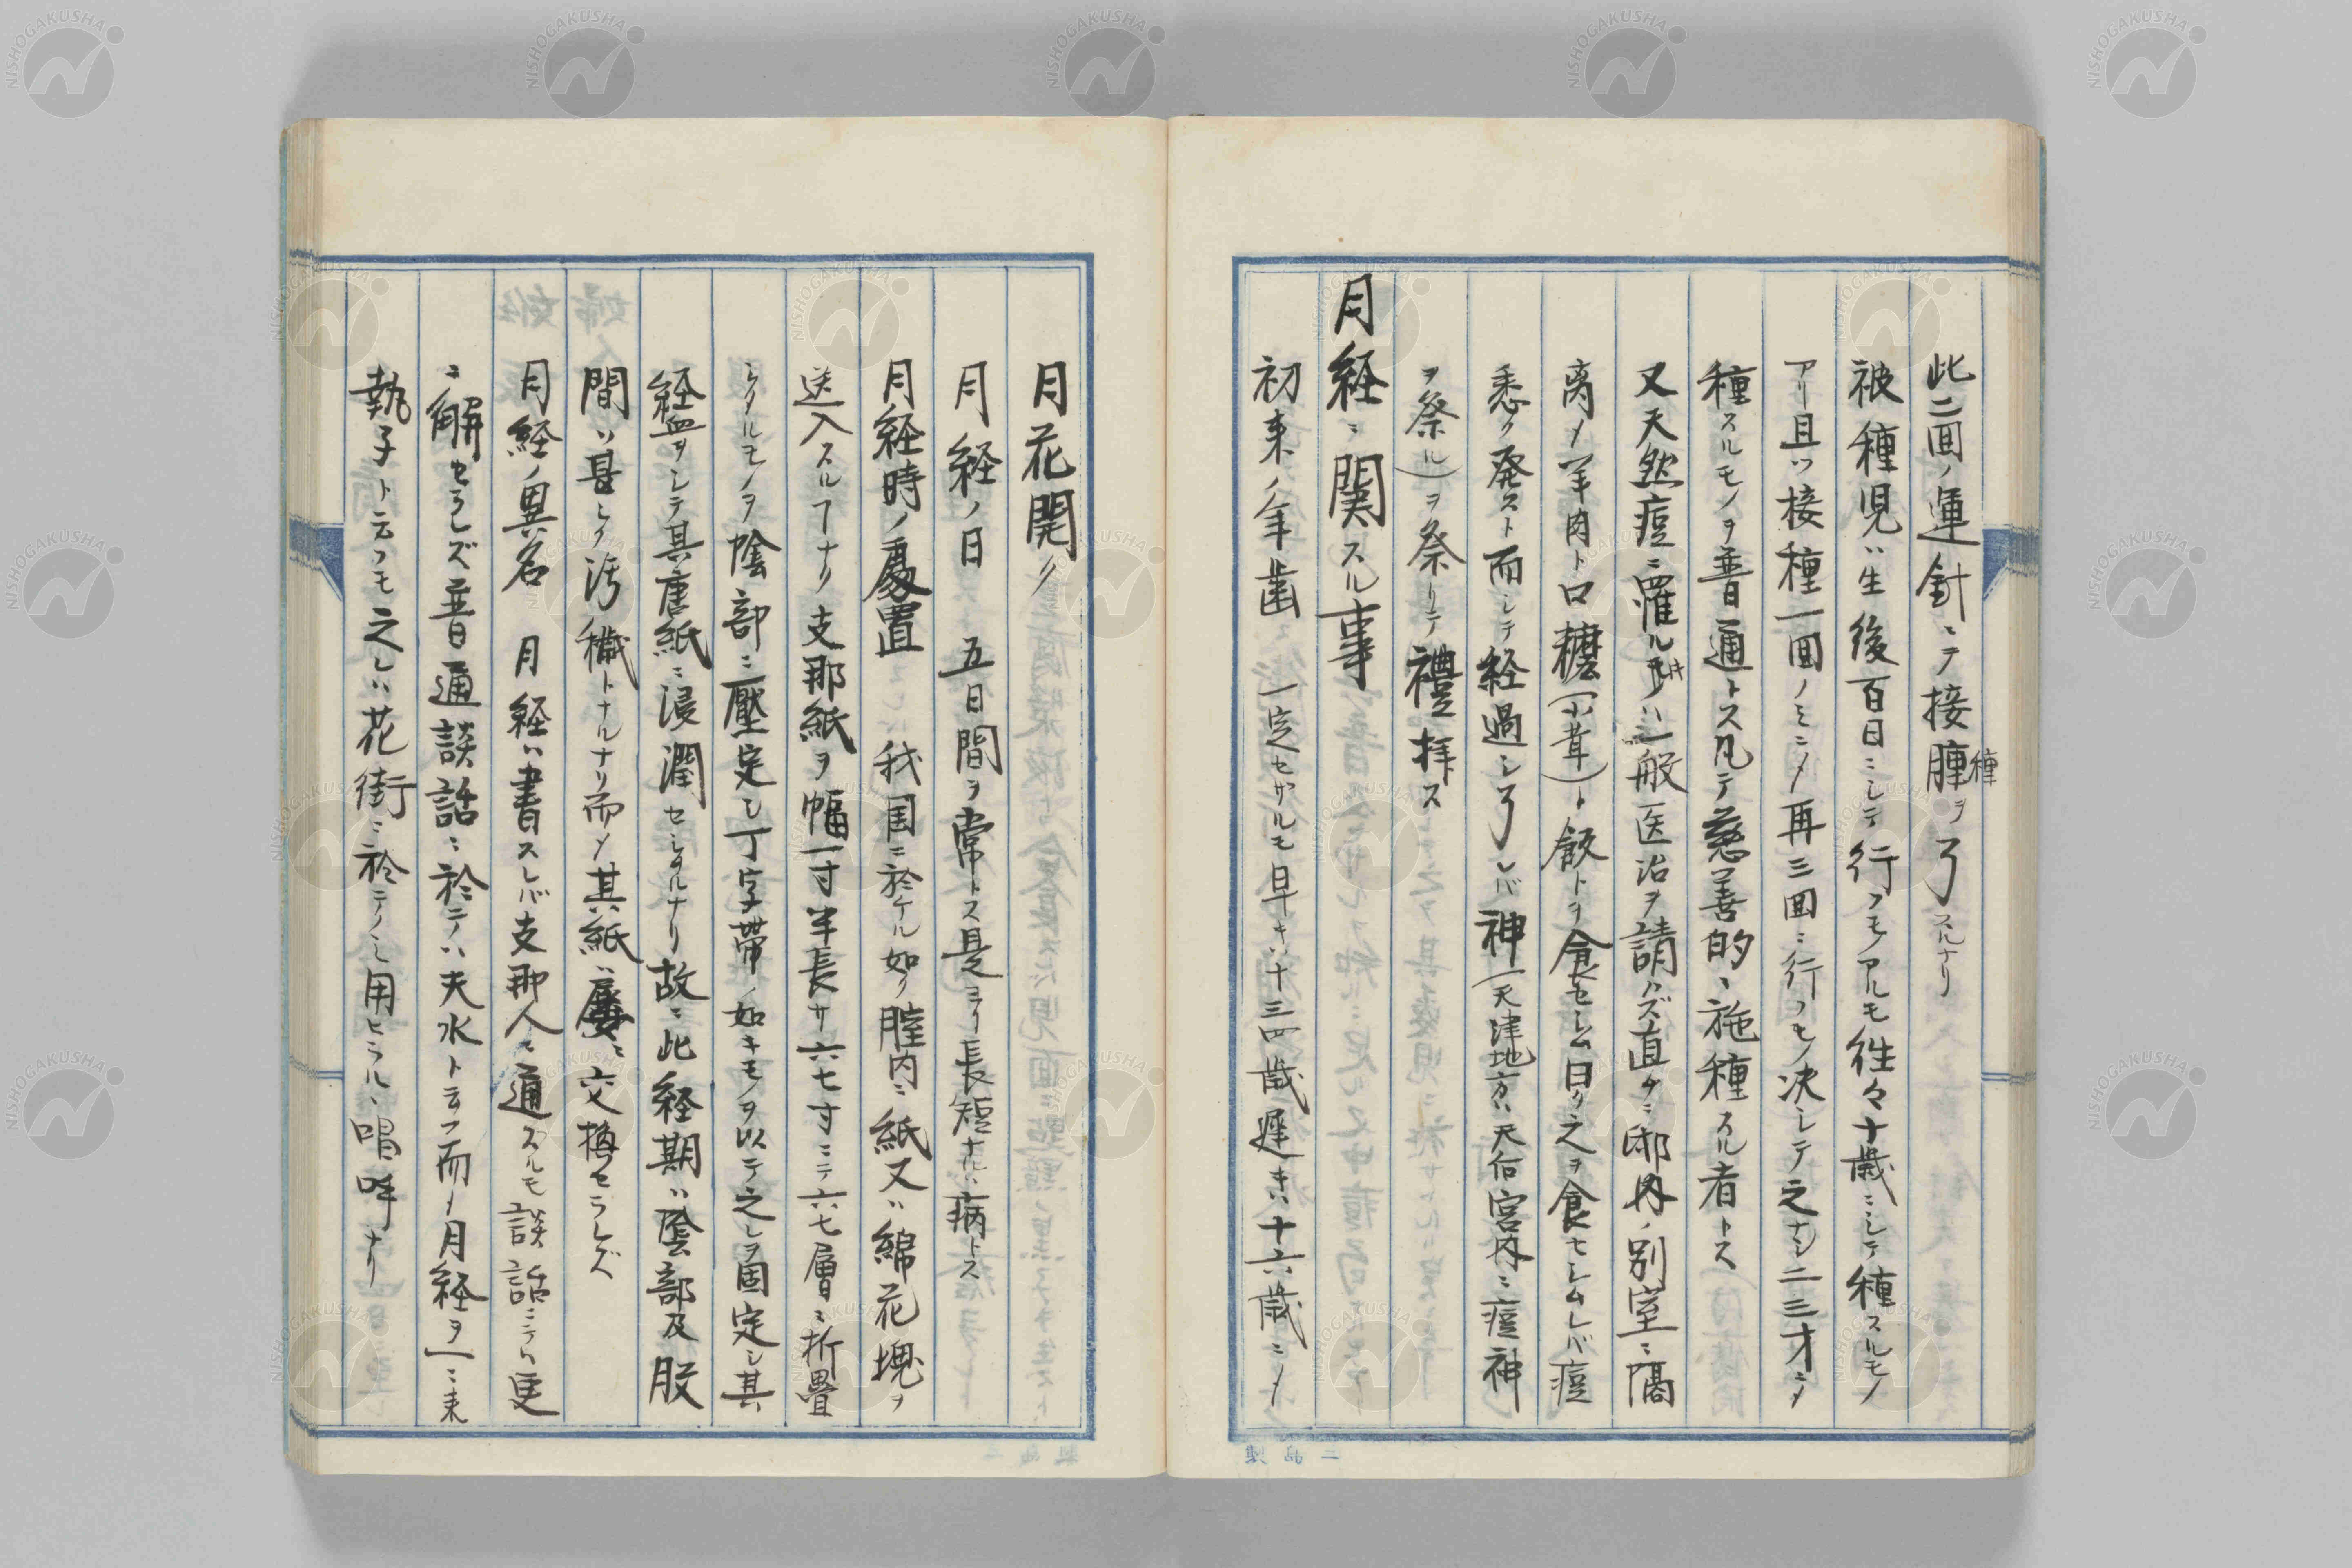 此二回ノ運針ニテ接腫ヲ了スルナリ
種
被種児ハ生後百日ニシテ行フモノアルモ往々十歳ニシテ種スルモノ
アリ且ツ接種一回ノミニノ再三回ニ行フモノ決シテ之ナシ二三才ニノ
種スルモノヲ普通トス凡テ慈善的ニ施種スル者トス
又天然痘ニ罹ル時ハ一般医治ヲ請ハズ直チニ邸内ノ別室ニ隔
离ノ羊肉ト口糖(小茸)ト飯トヲ食セシム日ク之ヲ食セシムレバ痘
悉ク発スト而シテ経過シ了レバ神(天津地方ハ天后宮内ニ痘神
ヲ祭ル)ヲ祭リテ禮拝ス
月経ニ関スル事
初来ノ年歯 一定セザルモ早キハ十三四歳遅キハ十六歳ニノ
月花開ク
月経ノ日 五日間ヲ常トス是ヨリ長短ナルハ病トス
月経時ノ處置 我国ニ於ケル如ク膣内ニ紙又ハ綿花塊ヲ
送入スルヿナリ支那紙ヲ幅一寸半長サ六七寸ニテ六七層ニ折疊
シタルモノヲ陰部ニ壓定シ丁字帶ノ如キモノヲ以テ之レヲ固定シ其
経血ヲシテ其唐紙ニ浸潤セシムルナリ故ニ此経期ハ陰部及股
間ハ甚シク汚穢トナルナリ而ノ其紙ハ屡々交換セラレズ
月経ノ異名 月経ハ書スレバ支那人ニ通スルモ談話ニテハ更
ニ解セラレズ普通談話ニ於テハ夫水ト云フ而ノ月経ヲ一ニ来
執子ト云フモ之レハ花街ニ於テノミ用ヒラル、唱呼ナリ
二酉製
NISHOGAKUSHA